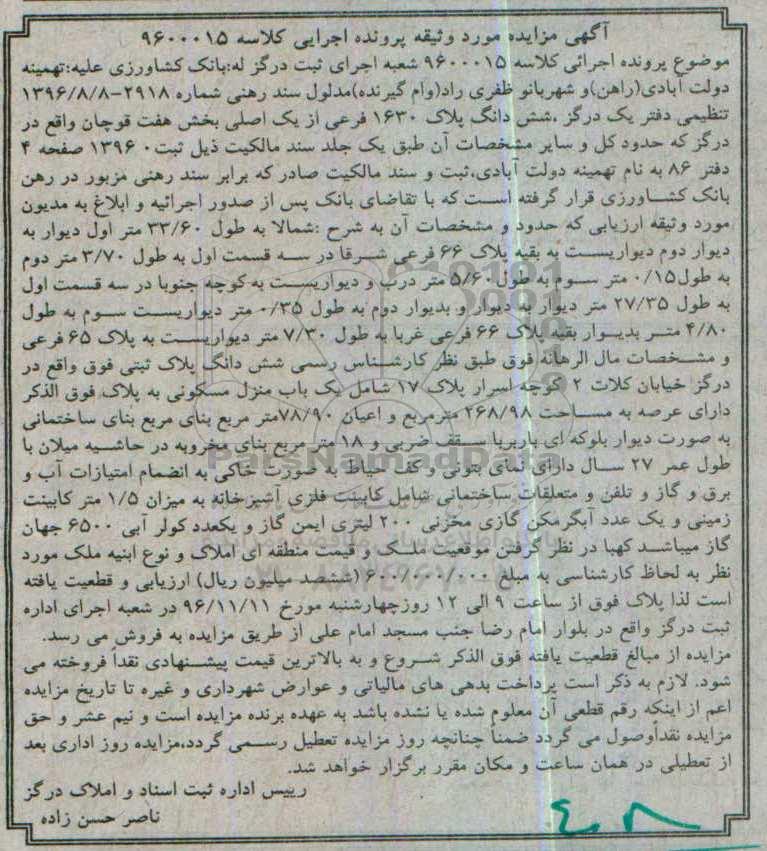 آگهی مزایده مورد وثیقه پرونده اجرایی کلاسه ۹۶۰۰۰۱۵
موضوع پرونده اجرائی کلاسه ۹۶۰۰۰۱۵ شعبه اجرای ثبت درگز له:بانک کشاورزی علیه:تهمینه
دولت آبادی(راهن)و شهربانو ظفری راد(وام گیرنده)مدلول سند رهنی شماره ۲۹۱۸-۱۳۹۶/۸/۸
تنظیمی دفتر یک درگز ،شش دانگ پلاک ۱۶۳۰ فرعی از یک اصلی بخش هفت قوچان واقع در
درگز که حدود کل و سایر مشخصات آن طبق یک جلد سند مالکیت ذیل ثبت۱۳۹۶۰ صفحه ۴
دفتر ۸۶ به نام تهمینه دولت آبادی،ثبت و سند مالکیت صادر که برابر سند رهنی مزبور در رهن
بانک کشاورزی قرار گرفته است که با تقاضای بانک پس از صدور اجرائیه و ابلاغ به مدیون
مورد وثیقه ارزیابی که حدود و مشخصات آن به شرح :شمالا به طول ۳۳/۶۰ متر اول دیوار به
دیوار دوم دیواریست به بقیه پلاک ۶۶ فرعی شرقا در سه قسمت اول به طول ۳/۷۰ متر دوم
به طول۰/۱۵ متر سوم به طول۵/۶۰ متر درب و دیواریست به کوچه جنوبا در سه قسمت اول
به طول ۲۷/۳۵ متر دیوار به دیوار و بدیوار دوم به طول ۰/۳۵ متر دیواریست سوم به طول
۴/۸۰ متر بدیوار بقیه پلاک ۶۶ فرعی غربا به طول ۷/۳۰ متر دیواریست به پلاک ۶۵ فرعی
و مشخصات مال الرهانه فوق طبق نظر کارشناس رسمی شش دانگ پلاک ثبتی فوق واقع در
درگز خیابان کلات ۲ کوچه اسرار پلاک ۱۷ شامل یک باب منزل مسکونی به پلاک فوق الذکر
دارای عرصه به مساحت ۲۶۸/۹۸ مترمربع و اعیان ۷۸/۹۰متر مربع بنای مربع بنای ساختمانی
به صورت دیوار بلوکه ای باربربا سقف ضربی و ۱۸ متر مربع بنای مخروبه در حاشیه میلان با
طول عمر ۲۷ سال دارای نمای بتونی و کف حیاط به صورت خاکی به انضمام امتیازات آب و
برق و گاز و تلفن و متعلقات ساختمانی شامل کابینت فلزی آشپزخانه به میزان ۱/۵ متر کابینت
زمینی و یک عدد آبگرمکن گازی مخزنی ۲۰۰ لیتری ایمن گاز و یکعدد کولر آبی ۶۵۰۰ جهان
گاز میباشد کهبا در نظر گرفتن موقعیت ملک و قیمت منطقه ای املاک و نوع ابنیه ملک مورد
نظر به لحاظ کارشناسی به مبلغ ۶۰۰/۰۰۰/۰۰۰ (ششصد میلیون ریال) ارزیابی و قطعیت یافته
است لذا پلاک فوق از ساعت ۹ الی ۱۲ روزچهارشنبه مورخ ۹۶/۱۱/۱۱ در شعبه اجرای اداره
ثبت درگز واقع در بلوار امام رضا جنب مسجد امام علی از طریق مزایده به فروش می رسد.
مزایده از مبالغ قطعیت یافته فوق الذکر شروع و به بالاترین قیمت پیشنهادی نقداً فروخته می
شود. لازم به ذکر است پرداخت بدهی های مالیاتی و عوارض شهرداری و غیره تا تاریخ مزایده
اعم از اینکه رقم قطعی آن معلوم شده یا نشده باشد به عهده برنده مزایده است و نیم عشر و حق
مزایده نقداًوصول می گردد ضمناً چنانچه روز مزایده تعطیل رسمی گردد،مزایده روز اداری بعد
از تعطیلی در همان ساعت و مکان مقرر برگزار خواهد شد.
رییس اداره ثبت اسناد و املاک درگز
ناصر حسن زاده
ParsNamadData